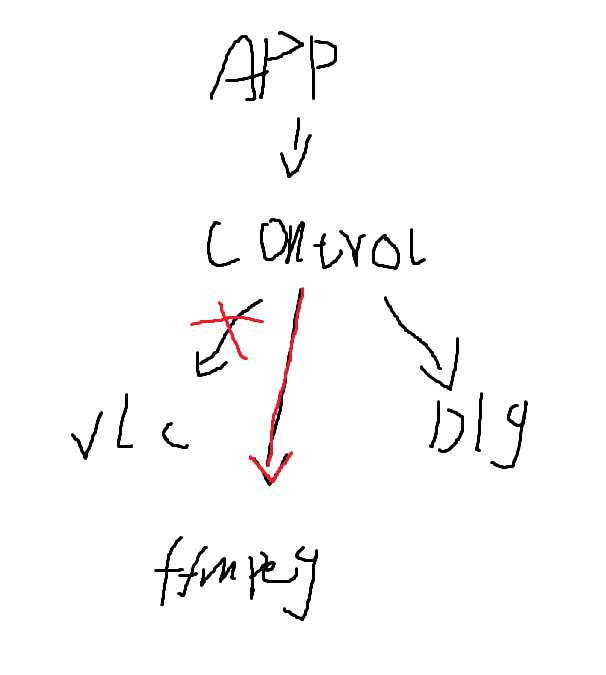 APP
control
vlc
Dlg
ffmpeg